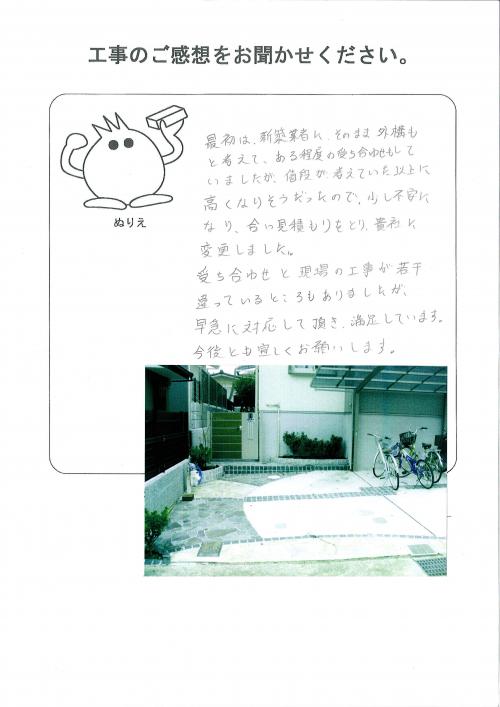 工事のご感想をお聞かせください。
ぬりえ
最初は、新築業者に、そのまま外構も
と考えて、ある程度の受ち合わせもして
いましたが、値段が、考えていた以上に
高くなりそうだったので、少し不安に
なり、合い見積もりをとり、貴社に
変更しました。
受ち合わせと現場の工事が若干
違っているところもありましたが、
早急に対応して頂き、満足しています。
今後とも宜しくお願いします。